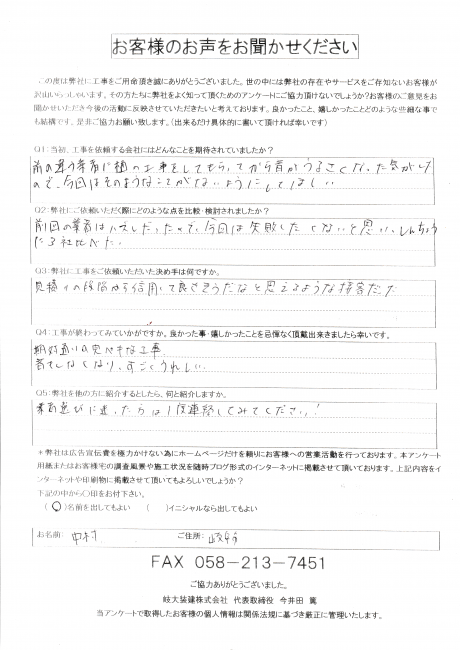 お客様のお声をお聞かせください
この度は弊社に工事をご用命頂き誠にありがとうございました。世の中には弊社の存在やサービスをご存知ないお客様が
沢山いらっしゃいます。その方たちに弊社をよく知って頂くためのアンケートにご協力頂けないでしょうか?お客様のご意見をお
聞かせいただき今後の活動に反映させていただきたいと考えております。良かったこと、嬉しかったことどのような些細な事で
も結構です。是非ご協力お願い致します。（出来るだけ具体的に書いて頂ければ幸いです）
Q1:当初、工事を依頼する会社にはどんなことを期待されていましたか?
前の違う業者に樋の工事をしてもらってから音がうるさくなった気がした
ので、今回はそのようなことがないようにしてほしい
Q2:弊社にご依頼いただく際にどのような点を比較・検討されましたか?
前回の業者はハズレだったので、今回は失敗したくないと思い、しんちょう
に3社比べた.
Q3:弊社に工事をご依頼いただいた決め手は何ですか。
見積りの段階から信用して良さそうだなと思えるような接客だった
Q4:工事が終わってみていかがですか。良かった事・嬉しかったことを忌憚なく頂戴出来きましたら幸いです。
期待通りの完ペキな工事.
音もしなくなり、すごくうれしい.
Q5:弊社を他の方に紹介するとしたら、何と紹介しますか。
業者選びに迷った方は1度連絡してみてください!
＊弊社は広告宣伝費を極力かけない為にホームページだけを頼りにお客様への営業活動を行っております。本アンケート
用紙またはお客様宅の調査風景や施工状況を随時ブログ形式のインターネットに掲載させて頂いております。上記内容をイ
ンターネットや印刷物に掲載させて頂いてもよろしいでしょうか?
下記の中から○印をお付下さい。
（○）名前を出してもよい （ ）イニシャルなら出してもよい
お名前: 中村 ご住所: 岐阜市
FAX 058-213-7451
ご協力ありがとうございました。
岐大装建株式会社 代表取締役 今井田 篤
当アンケートで取得したお客様の個人情報は関係法規に基づき厳正に管理いたします。